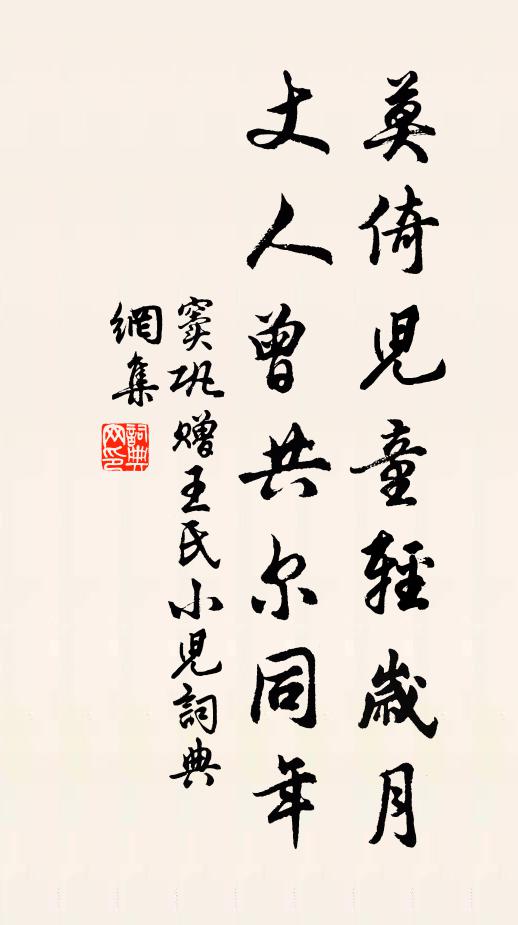 莫倚兒童輕歲月
丈人曾共尔同年
窦巩赠王氏小児詞典
網集
詞典
网印